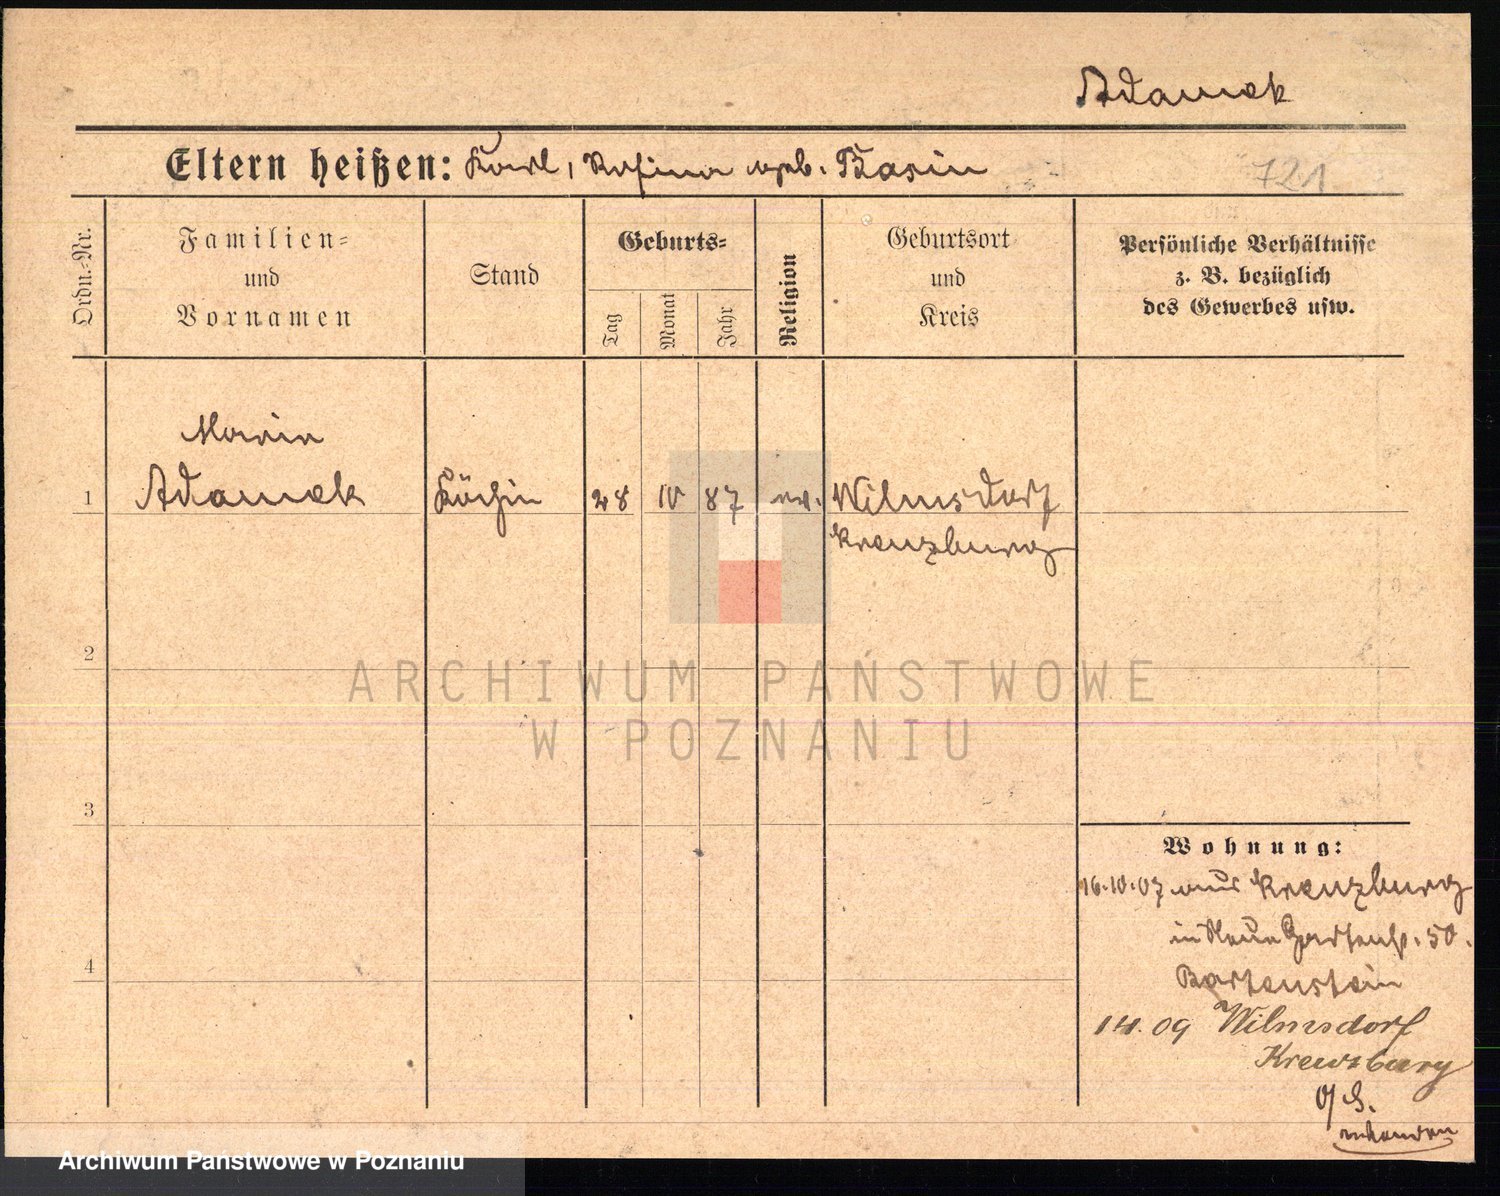 Adamek
Eltern heißen: Karl, Rosina geb. Basin
721
Ordn.-Nr.
Familien-
und
Vornamen
Stand
Geburts-
Tag
Monat
Jahr
Religion
Geburtsort
und
Kreis
Persönliche Verhältnisse
z. B. bezüglich
des Gewerbes usw.
Maria
1 Adamek Köchin 28 10 87 ev. Wilmsdorf
Kreuzburg
2
3
4
Wohnung:
16.10.07 aus Kreuzburg
in Neue Gartenstr. 50.
Bartenstein
14.09 Wilmsdorf
Kreuzburg
O/S.
ARCHIWUM PAŃSTWOWE
W POZNANIU
Archiwum Państwowe w Poznaniu